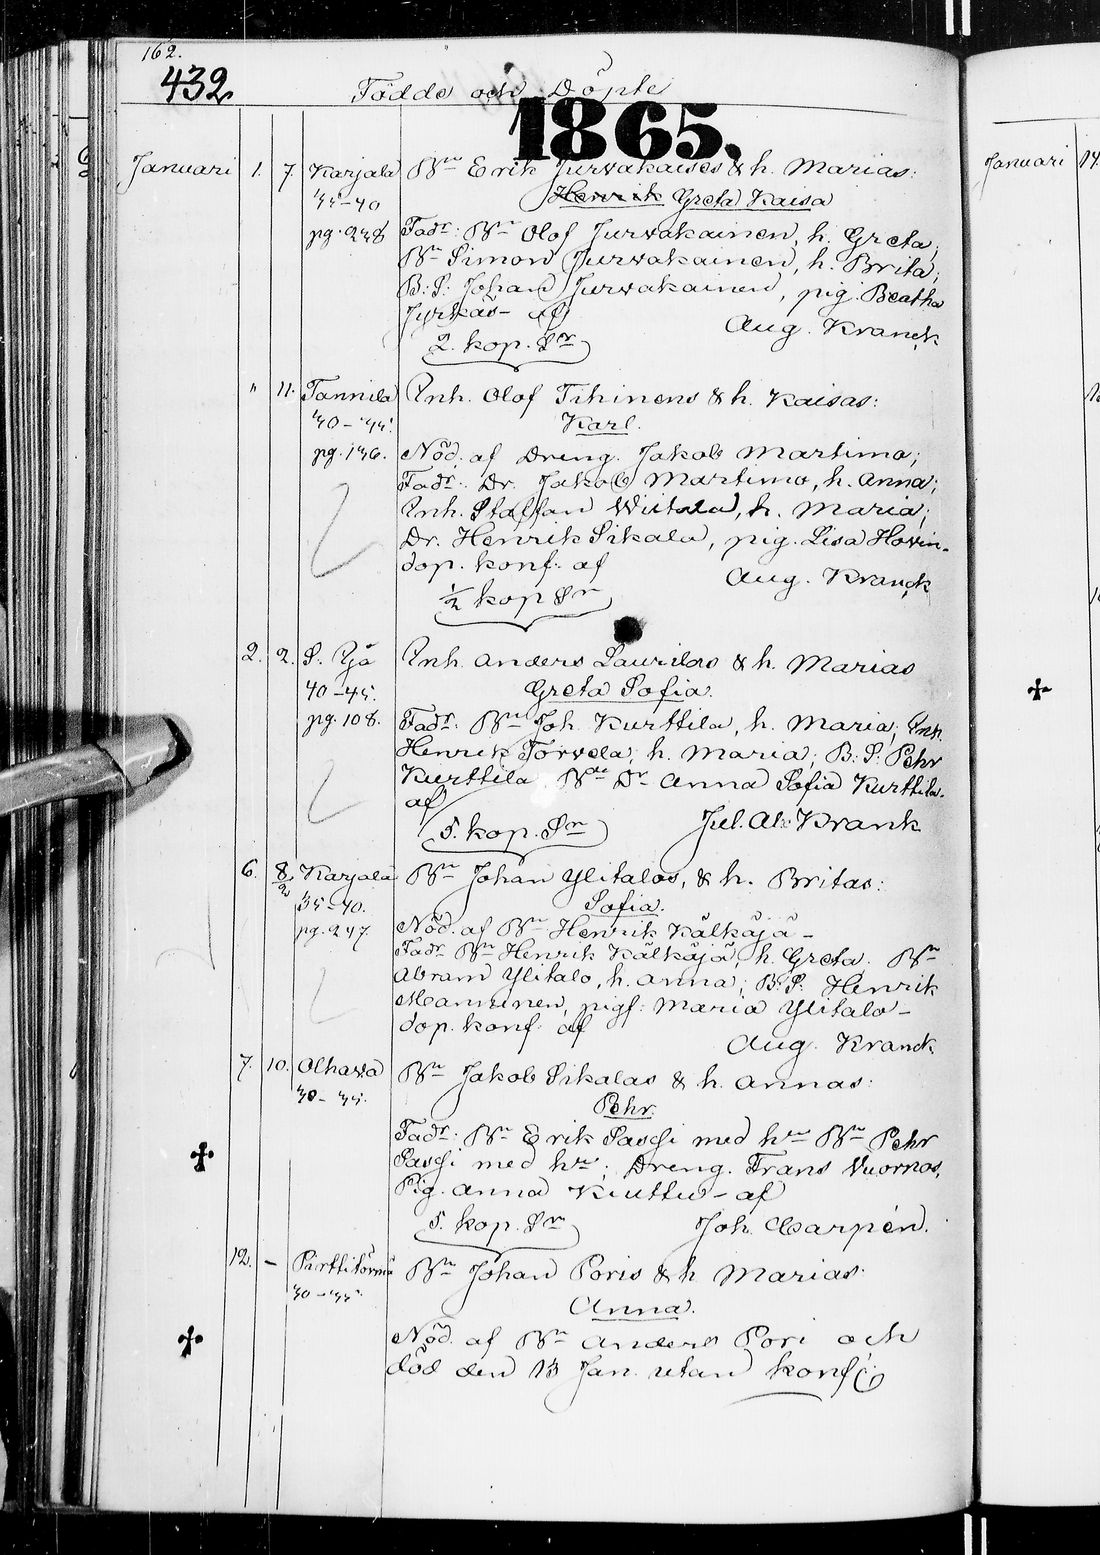 162.
432
Födde och Döpte
1865.
Januari 1. 7. Karjala Bn Erik Jurvakaises & h. Marias:
35-40 Henrik Greta Kaisa
pg. 238 Fadr: Bn Olof Jurvakainen, h. Greta;
Bn Simon Jurvakainen, h. Brita;
B: S: Johan Jurvakainen, pig. Beatha
Jyrkäs- af
Aug. Kranck
2. kop. Sr
" 11. Tannila Inh. Olof Tihinens & h. Kaisas:
40-45. Karl.
pg. 136. Nöd. af Dreng. Jakob Martimo;
Fadr: Dr. Jakob Martimo, h. Anna;
Inh. Staffan Wiitala, h. Maria;
Dr. Henrik Sikala, pig. Lisa Hovin-
dop. konf. af
Aug. Kranck
1/2 kop Sr
2. 2. S. Yjä Inh. Anders Laurilas & h. Marias
40-45. Greta Sofia.
pg. 108. Fadr: Bn Joh. Kurttila, h. Maria; Inh.
Henrik Torvela, h. Maria; B: S: Pehr
Kurttila, Dr Anna Sofia Kurttila.
af
5. kop. Sr Jul. Al. Krank
6. 8/2 Karjala Bn Johan Ylitalos, & h. Britas:
35-40. Sofia.
pg. 247. Nöd. af Bn Henrik Kälkäjä-
Fadr Bn Henrik Kälkäjä, h. Greta. Bn
Abram Ylitalo, h. Anna; B: S: Henrik
Manninen, pigf: Maria Ylitalo-
dop. konf. af
Aug. Kranck
7. 10. Olhava Bn Jakob Sikalas & h. Annas:
30-35. Pehr.
Fadr: Bn Erik Sassi med hu Bn Pehr
Sassi med hu; Dreng. Frans Vuornos,
Pig. Anna Kiuttu- af
5. kop. Sr Joh. Carpén.
12. - Pirttitörmä Bn Johan Poris & h Marias:
40-45. Anna.
Nöd. af Bn Anders Pori och
död den 13 Jan. utan konf:
Januari 14.